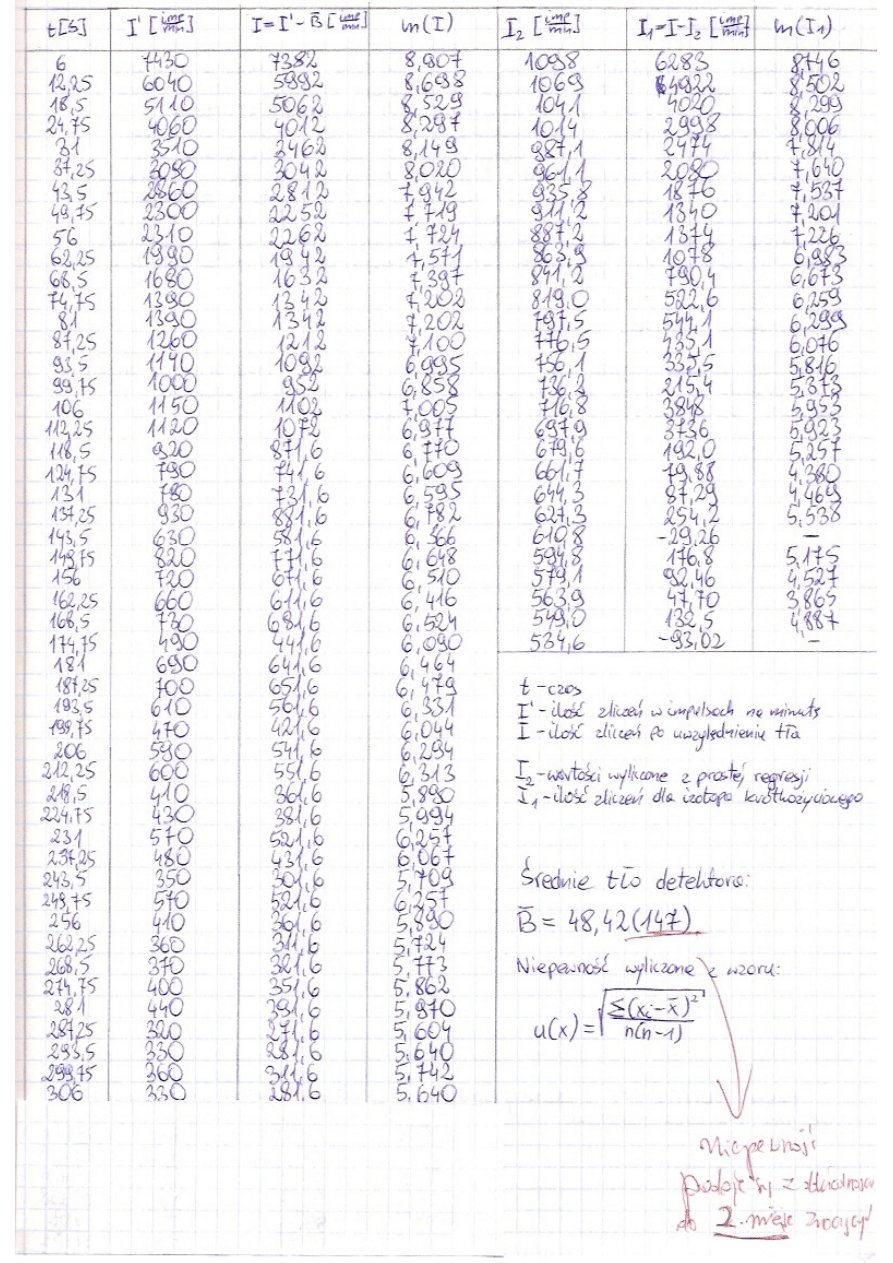 t[s] I' [imp/min] I=I'-B̄ [imp/min] ln(I) I₂ [imp/min] I₁=I-I₂ [imp/min] ln(I₁)
6 7430 7382 8,907 1098 6283 8,746
12,25 6040 5992 8,698 1069 4922 8,502
18,5 5110 5062 8,529 1041 4020 8,299
24,75 4060 4012 8,297 1014 2998 8,006
31 3510 3462 8,149 987,1 2474 7,814
37,25 3090 3042 8,020 961,1 2080 7,640
43,5 2860 2812 7,942 935,8 1876 7,537
49,75 2300 2252 7,719 911,2 1340 7,201
56 2310 2262 7,724 887,2 1374 7,226
62,25 1990 1942 7,571 863,9 1078 6,983
68,5 1680 1632 7,397 841,2 790,4 6,673
74,75 1390 1342 7,202 819,0 522,6 6,259
81 1390 1342 7,202 797,5 544,1 6,299
87,25 1260 1212 7,100 776,5 435,1 6,076
93,5 1140 1092 6,995 756,1 335,5 5,816
99,75 1000 952 6,858 736,2 215,4 5,373
106 1150 1102 7,005 716,8 384,8 5,953
112,25 1120 1072 6,977 697,9 373,6 5,923
118,5 920 871,6 6,770 679,6 192,0 5,257
124,75 790 741,6 6,609 661,7 79,88 4,380
131 780 731,6 6,595 644,3 87,29 4,469
137,25 930 881,6 6,782 627,3 254,2 5,538
143,5 630 581,6 6,366 610,8 -29,26 –
149,75 820 771,6 6,648 594,8 176,8 5,175
156 720 671,6 6,510 579,1 92,46 4,527
162,25 660 611,6 6,416 563,9 47,70 3,865
168,5 730 681,6 6,524 549,0 132,5 4,887
174,75 490 441,6 6,090 534,6 -93,02 –
181 690 641,6 6,464
187,25 700 651,6 6,479
193,5 610 561,6 6,331
199,75 470 421,6 6,044
206 590 541,6 6,294
212,25 600 551,6 6,313
218,5 410 361,6 5,890
224,75 430 381,6 5,994
231 570 521,6 6,257
237,25 480 431,6 6,067
243,5 350 301,6 5,709
249,75 570 521,6 6,257
256 410 361,6 5,890
262,25 360 311,6 5,724
268,5 370 321,6 5,773
274,75 400 351,6 5,862
281 440 391,6 5,970
287,25 320 271,6 5,604
293,5 330 281,6 5,640
299,75 360 311,6 5,742
306 330 281,6 5,640
t - czas
I' - ilość zliczeń w impulsach na minutę
I - ilość zliczeń po uwzględnieniu tła
I₂ - wartości wyliczone z prostej regresji
I₁ - ilość zliczeń dla izotopu krótkożyciowego
Średnie tło detektora:
B̄ = 48,42(147)
Niepewność wyliczona z wzoru:
u(x) = √(Σ(xᵢ-x̄)²/n(n-1))
Niepewność
podaje się z dokładnością
do 2 miejsc znaczących